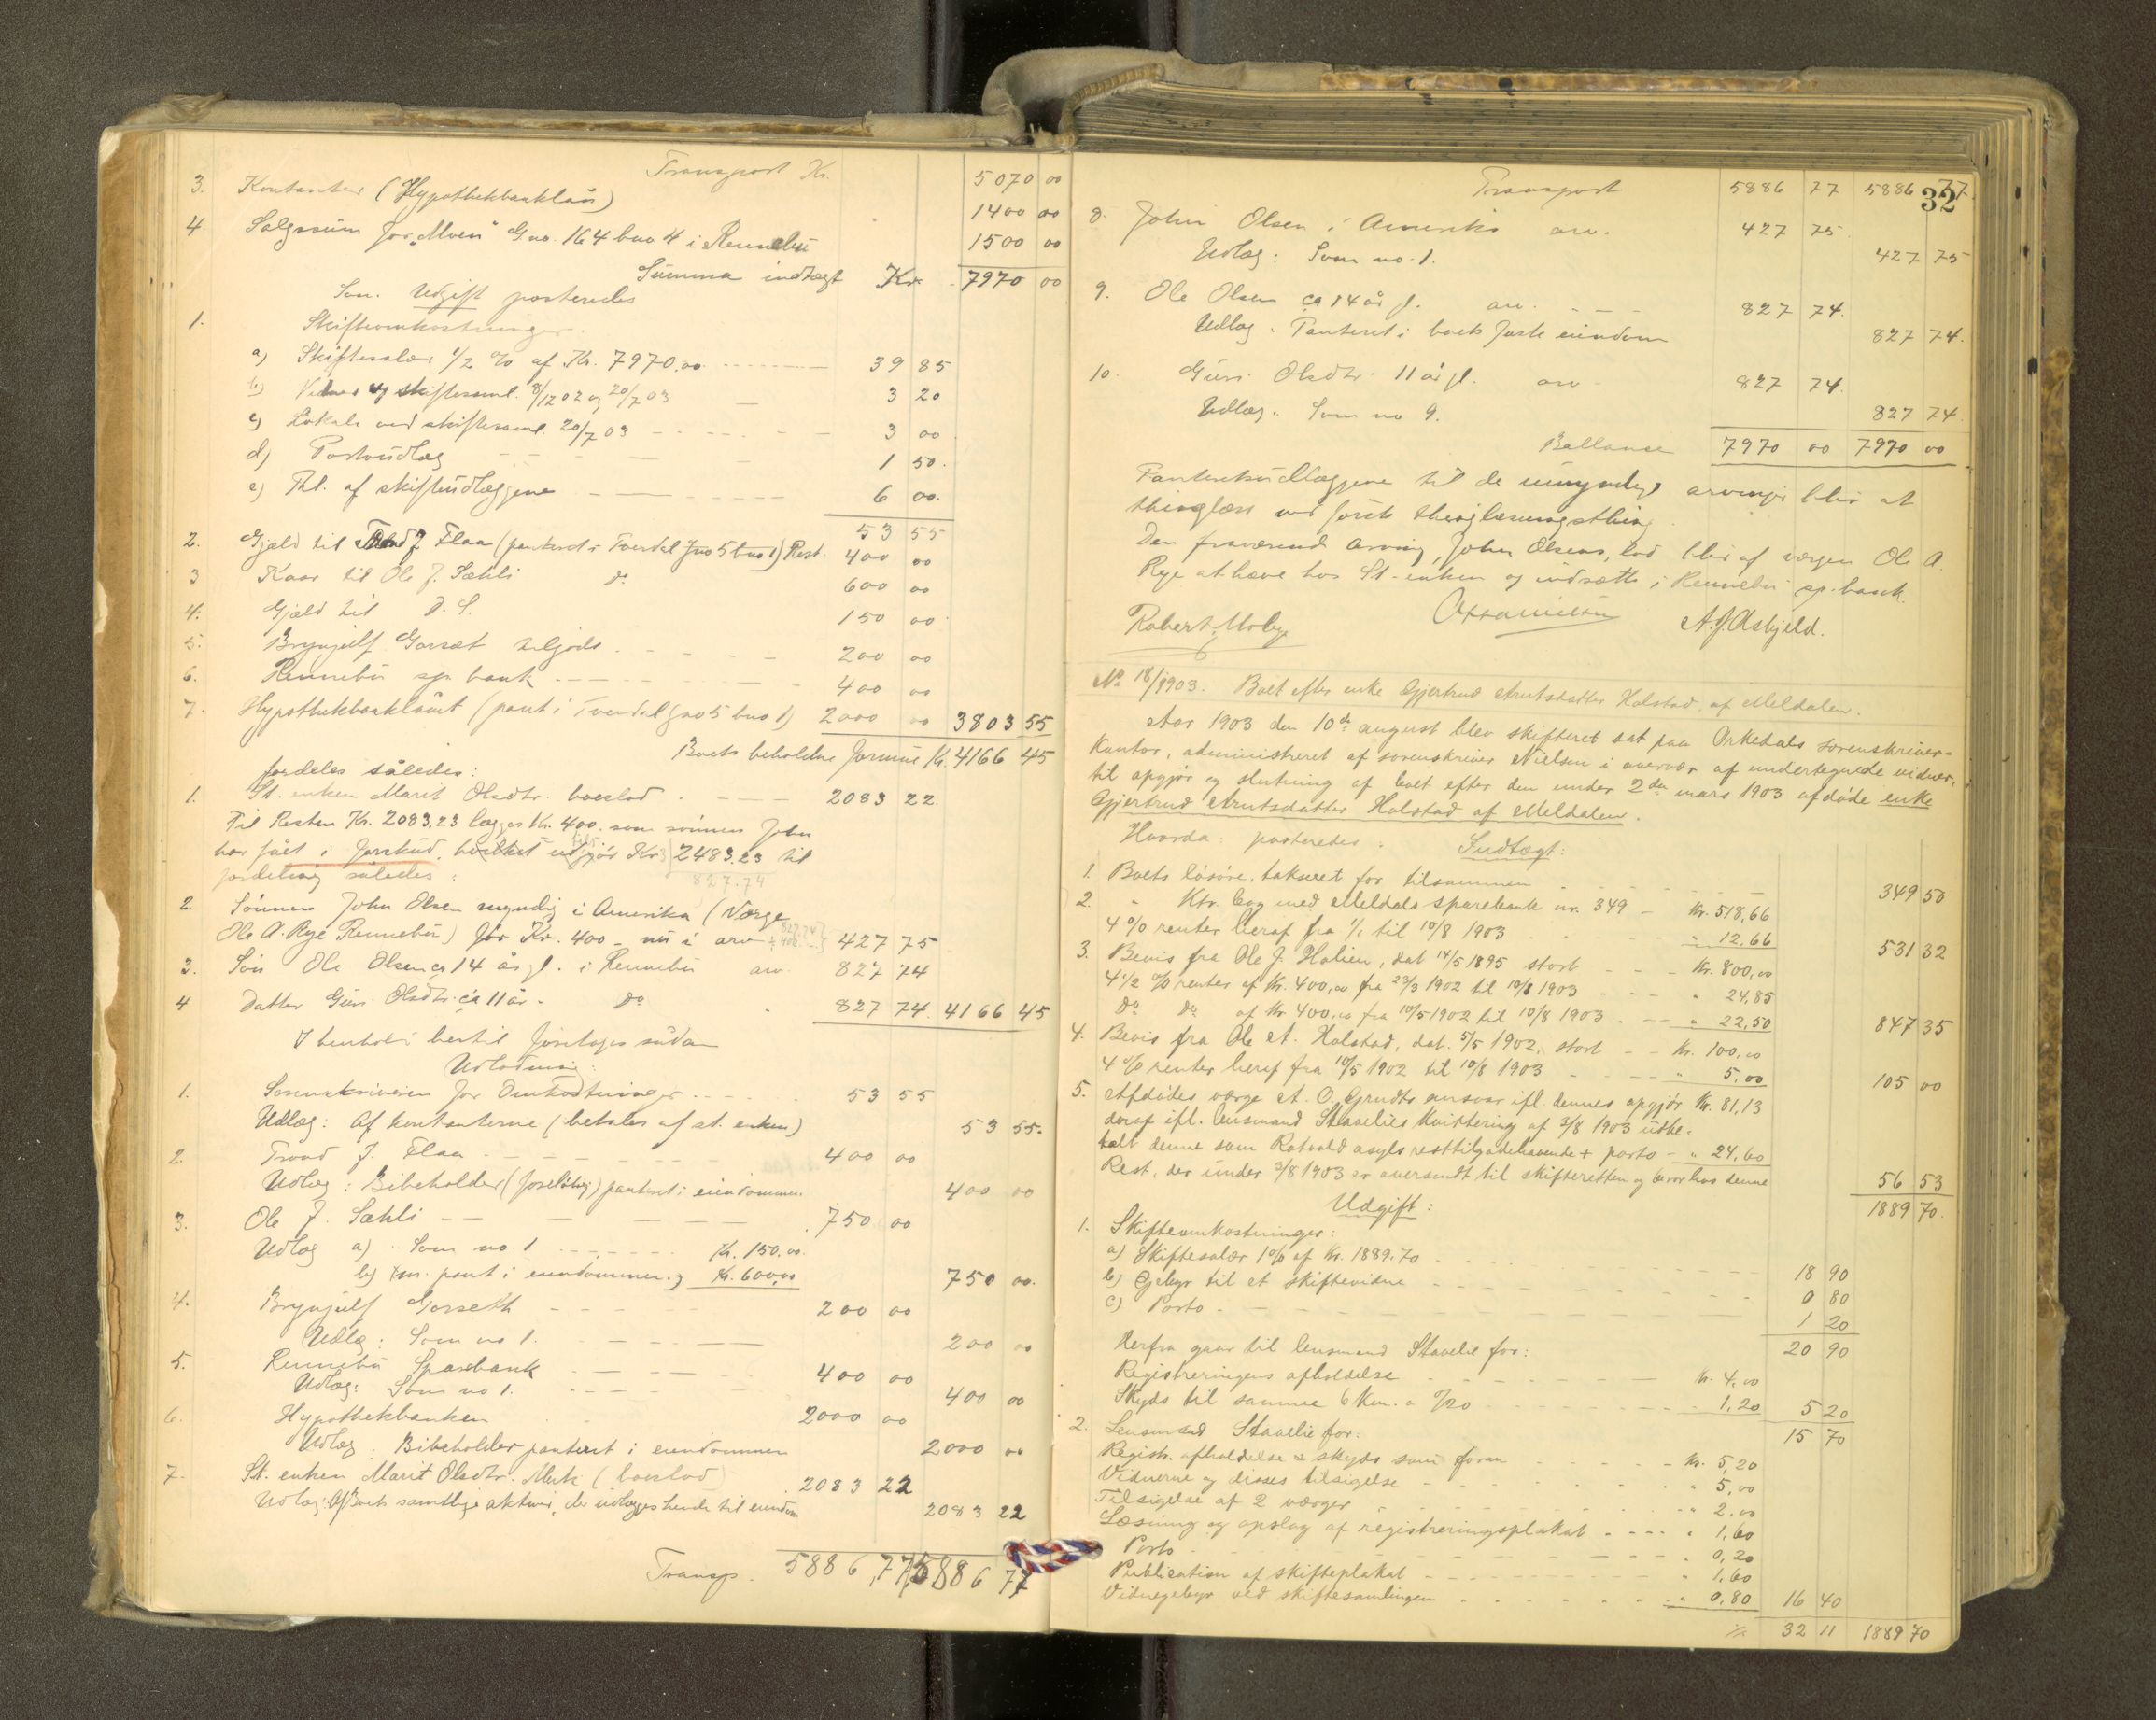 Transport Kr. 5070 00
3. Kontanter (Hypothekbanklån) 1400 00
4 Salgssum for "Moen" Gno. 164 bno 4 i Rennebu 1500 00
Summa indtægt Kr. 7970 00
Som Udgift posteredes
1. Skifteomkostninger.
a) Skiftesalær 1/2 % af Kr. 7970.00 39 85
b) Vidner ved skiftesaml. 8/12 02 og 20/7 03 3 20
c) Lokale ved skiftesaml. 20/7 03 3 00
d) Portoudlæg 1 50.
e) Thl. af skifteudlæggene 6 00.
53 55
2. Gjæld til Trond J. Flaa (panteret i Tverdel gno 5 bno 1) Rest. 400 00
3 Kaar til Ole J. Sæhli do 600 00
4. Gjæld til D. S. 150 00
5. Brynjulf Gorset tilgode 200 00
6. Rennebu sp. bank 400 00
7. Hypothekbanklånet (pant i Tverdel gno 5 bno 1) 2000 00 3803 55
Boets beholdne formue Kr. 4166 45
fordeles således:
1. St. enken Marit Olsdtr. boeslod 2083 22.
Til Resten Kr. 2083.23 lægges Kr. 400. som sønnen John
har fået i forskud, hvilket udgjør Kr. 2483.23 til
fordeling således: 827.74
2. Sønnen John Olsen myndig i Amerika (Værge
Ole A. Rye Rennebu) før Kr. 400 - nu i arv 427 75
3. Søn Ole Olsen ca 14 år gl. i Rennebu arv 827 74
4 Datter Guri Olsdtr. ca 11 år - do 827 74. 4166 45
I henhold hertil foretoges sådan
Udlodning:
1. Sorenskriveren for Omkostninger 53 55
Udlæg: Af kontanterne (betales af st. enken) 53 55.
2. Trond J. Flaa 400 00
Udlæg: Bibeholder (foreløbig) panteret i eiendommen 400 00
3. Ole J. Sæhli 750 00
Udlæg a) Som no. 1 Kr. 150.00.
b) m. pant i eiendommen Kr. 600,00 750 00.
4. Brynjulf Gorseth 200 00
Udlæg: Som no 1. 200 00
5. Rennebu Sparebank 400 00
Udlæg: Som no 1. 400 00
6. Hypothekbanken 2000 00
Udlæg: Bibeholder panteret i eiendommen 2000 00
7. St. enken Marit Olsdtr. Merk (boeslod) 2083 22
Udlæg: Af Boets samtlige aktiver, der udlægges hende til eiendom 2083 22
Transp. 5886,77 5886 77
32
Transport 5886 77 5886 77
8. John Olsen i Amerika arv. 427 75.
Udlæg: Som no. 1. 427 75
9. Ole Olsen ca 14 år gl. arv. 827 74.
Udlæg. Panteret i boets faste eiendom 827 74.
10. Guri Olsdtr. 11 år gl. arv 827 74.
Udlæg. Som no 9. 827 74
Ballanse 7970 00 7970 00
Panteretsudlæggene til de umyndige arvinger blir at
thinglæse ved første thinglæsningsthing.
Den fraværende arving, John Olsens, lod blir af værgen Ole A.
Rye at hæve hos St. enken og indsætte i Rennebu sp. bank.
Robert Mobye A. J. Asbjeld.
No 18/1903. Boet efter enke Gjertrud Arntsdatter Holstad af Meldalen.
Aar 1903 den 10de august blev skifteret sat paa Orkedals sorenskriver-
kontor, administreret af sorenskriver Nielsen i overvær af undertegnede vidner,
til opgjør og slutning af boet efter den under 2den mars 1903 afdøde enke
Gjertrud Arntsdatter Holstad af Meldalen.
Hvorda: posteredes: Indtægt:
1. Boets løsøre, takseret for tilsammen 349 50
2. " Ktr. bog med Meldals sparebank nr. 349 - Kr. 518,66
4 % renter heraf fra 1/1 til 10/8 1903 " 12,66 531 32
3. Bevis fra Ole J. Holien, dat 14/5 1895 stort Kr. 800,00
4 1/2 % renter af Kr. 400,00 fra 23/3 1902 til 10/8 1903 " 24,85
do do af Kr. 400,00 fra 10/5 1902 til 10/8 1903 " 22,50 847 35
4. Bevis fra Ole A. Holstad, dat. 5/5 1902, stort Kr. 100,00
4 % renter heraf fra 10/5 1902 til 10/8 1903 " 5,00 105 00
5. Afdødes værge A. O. Grudts ansvar ifl. dennes opgjør Kr. 81,13
deraf ifl. lensmand Stavelies kvittering af 3/8 1903 udbe-
talt denne som Rotvold asyls resttilgodehavende + porto " 24,60
Rest, der under 3/8 1903 er oversendt til skifteretten og beror hos denne 56 53
1889 70.
Udgift:
1. Skifteomkostninger:
a) Skiftesalær 1 % af Kr. 1889.70 18 90
b) Gebyr til et skiftevidne 0 80
c) Porto 1 20
20 90
Herfra gaar til lensmand Stavelie for:
Registreringens afholdelse Kr. 4,00
Skyds til samme 6 Km. a 0/20 1,20 5 20
15 70
2. Lensmand Stavelie for:
Registr. afholdelse & skyds som foran Kr. 5,20
Vidnerne og disses tilsigelse " 5,00
Tilsigelse af 2 værger " 2,00
Læsning og opslag af registreringsplakat " 1,60
Porto " 0,20
Publication af skifteplakat " 1,60
Vidnegebyr ved skiftesamlingen " 0,80 16 40
32 11 1889 70